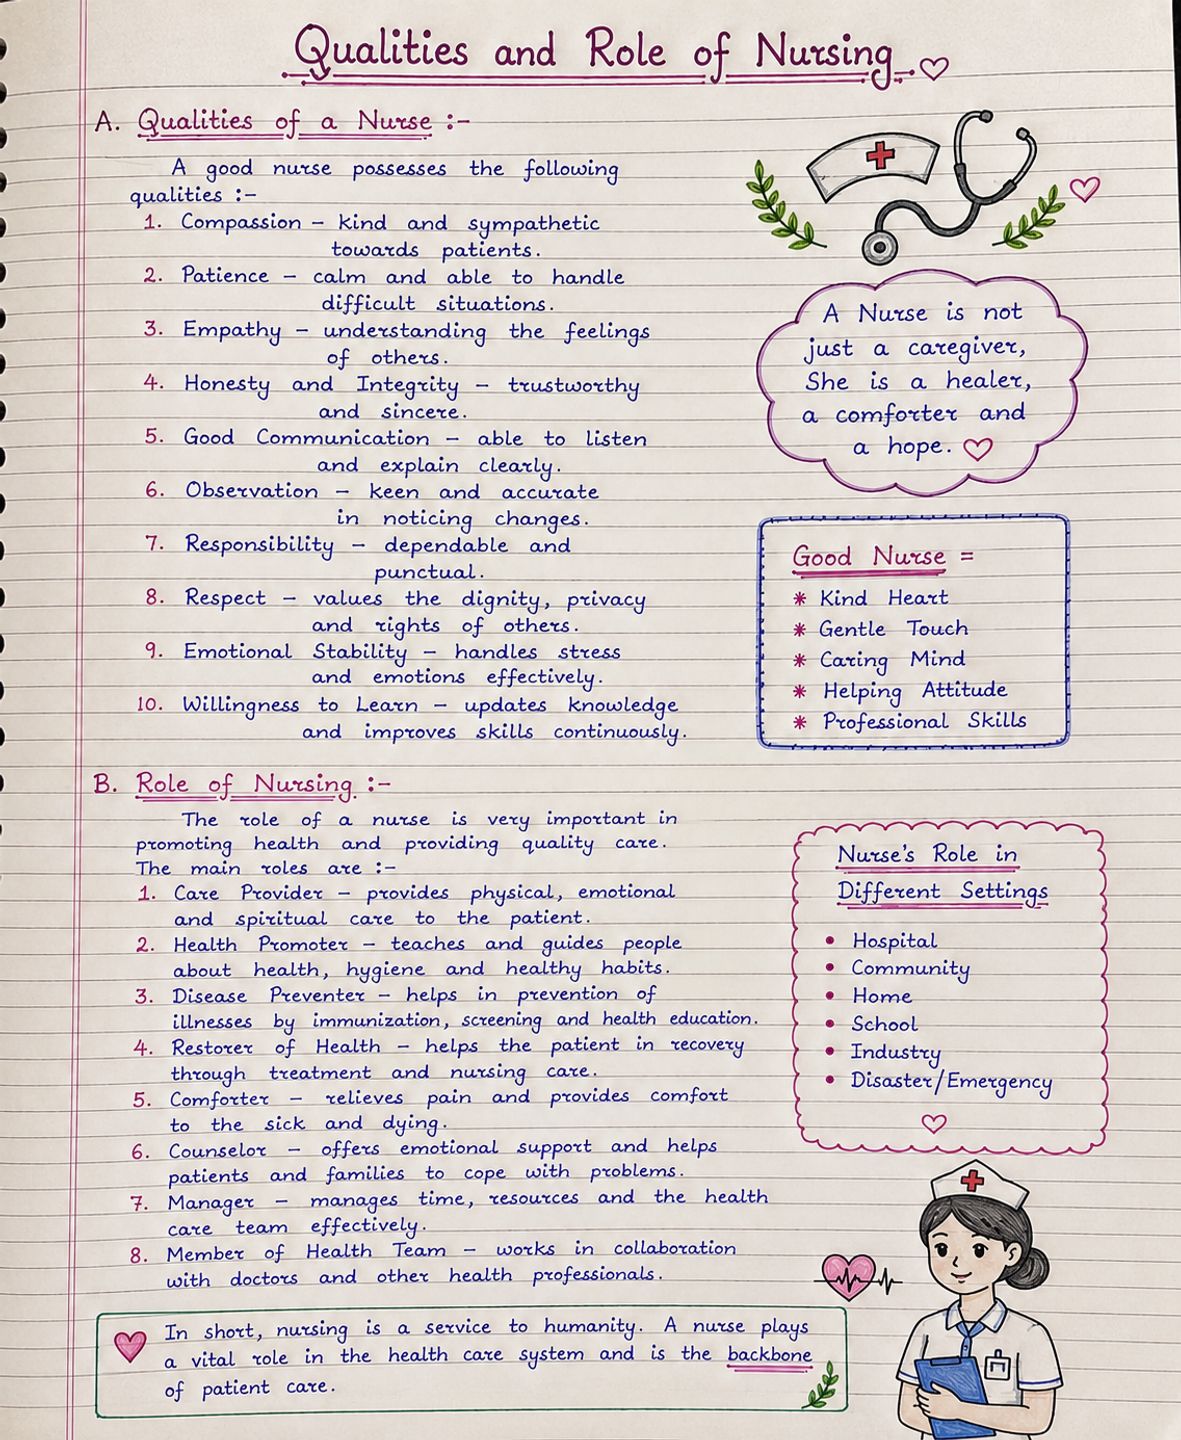 Qualities and Role of Nursing
A. Qualities of a Nurse :-
A good nurse possesses the following
qualities :-
1. Compassion – kind and sympathetic
towards patients.
2. Patience – calm and able to handle
difficult situations.
3. Empathy – understanding the feelings
of others.
4. Honesty and Integrity – trustworthy
and sincere.
5. Good Communication – able to listen
and explain clearly.
6. Observation – keen and accurate
in noticing changes.
7. Responsibility – dependable and
punctual.
8. Respect – values the dignity, privacy
and rights of others.
9. Emotional Stability – handles stress
and emotions effectively.
10. Willingness to Learn – updates knowledge
and improves skills continuously.
A Nurse is not
just a caregiver,
She is a healer,
a comforter and
a hope.
Good Nurse =
* Kind Heart
* Gentle Touch
* Caring Mind
* Helping Attitude
* Professional Skills
B. Role of Nursing :-
The role of a nurse is very important in
promoting health and providing quality care.
The main roles are :-
1. Care Provider – provides physical, emotional
and spiritual care to the patient.
2. Health Promoter – teaches and guides people
about health, hygiene and healthy habits.
3. Disease Preventer – helps in prevention of
illnesses by immunization, screening and health education.
4. Restorer of Health – helps the patient in recovery
through treatment and nursing care.
5. Comforter – relieves pain and provides comfort
to the sick and dying.
6. Counselor – offers emotional support and helps
patients and families to cope with problems.
7. Manager – manages time, resources and the health
care team effectively.
8. Member of Health Team – works in collaboration
with doctors and other health professionals.
Nurse's Role in
Different Settings
• Hospital
• Community
• Home
• School
• Industry
• Disaster/Emergency
In short, nursing is a service to humanity. A nurse plays
a vital role in the health care system and is the backbone
of patient care.